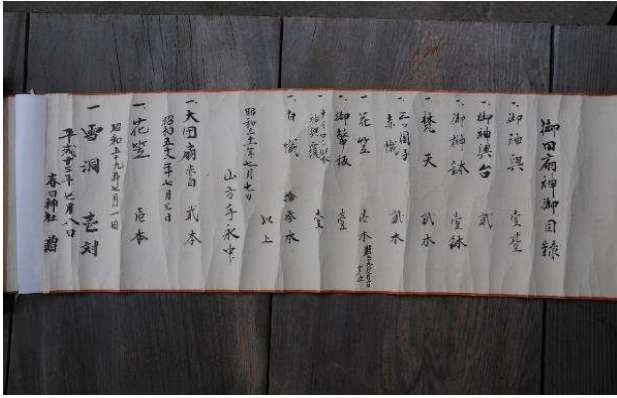 御田扇神御目録
一、御神輿 壹臺
一、御神輿台 弐
一、御榊鉢 壹鉢
一、梵天 弐本
一、 弐本
一、花笠 壱本
一、御幣板 壹
壹
一、白幟 拾参本
以上
昭和三十一年七月七日
山方手永中
一、大団扇 弐本
昭和五十八年七月三日
一、花笠 壱本
昭和五十九年七月一日
一 雪洞 壱対
平成十三年七月八日
春日神社